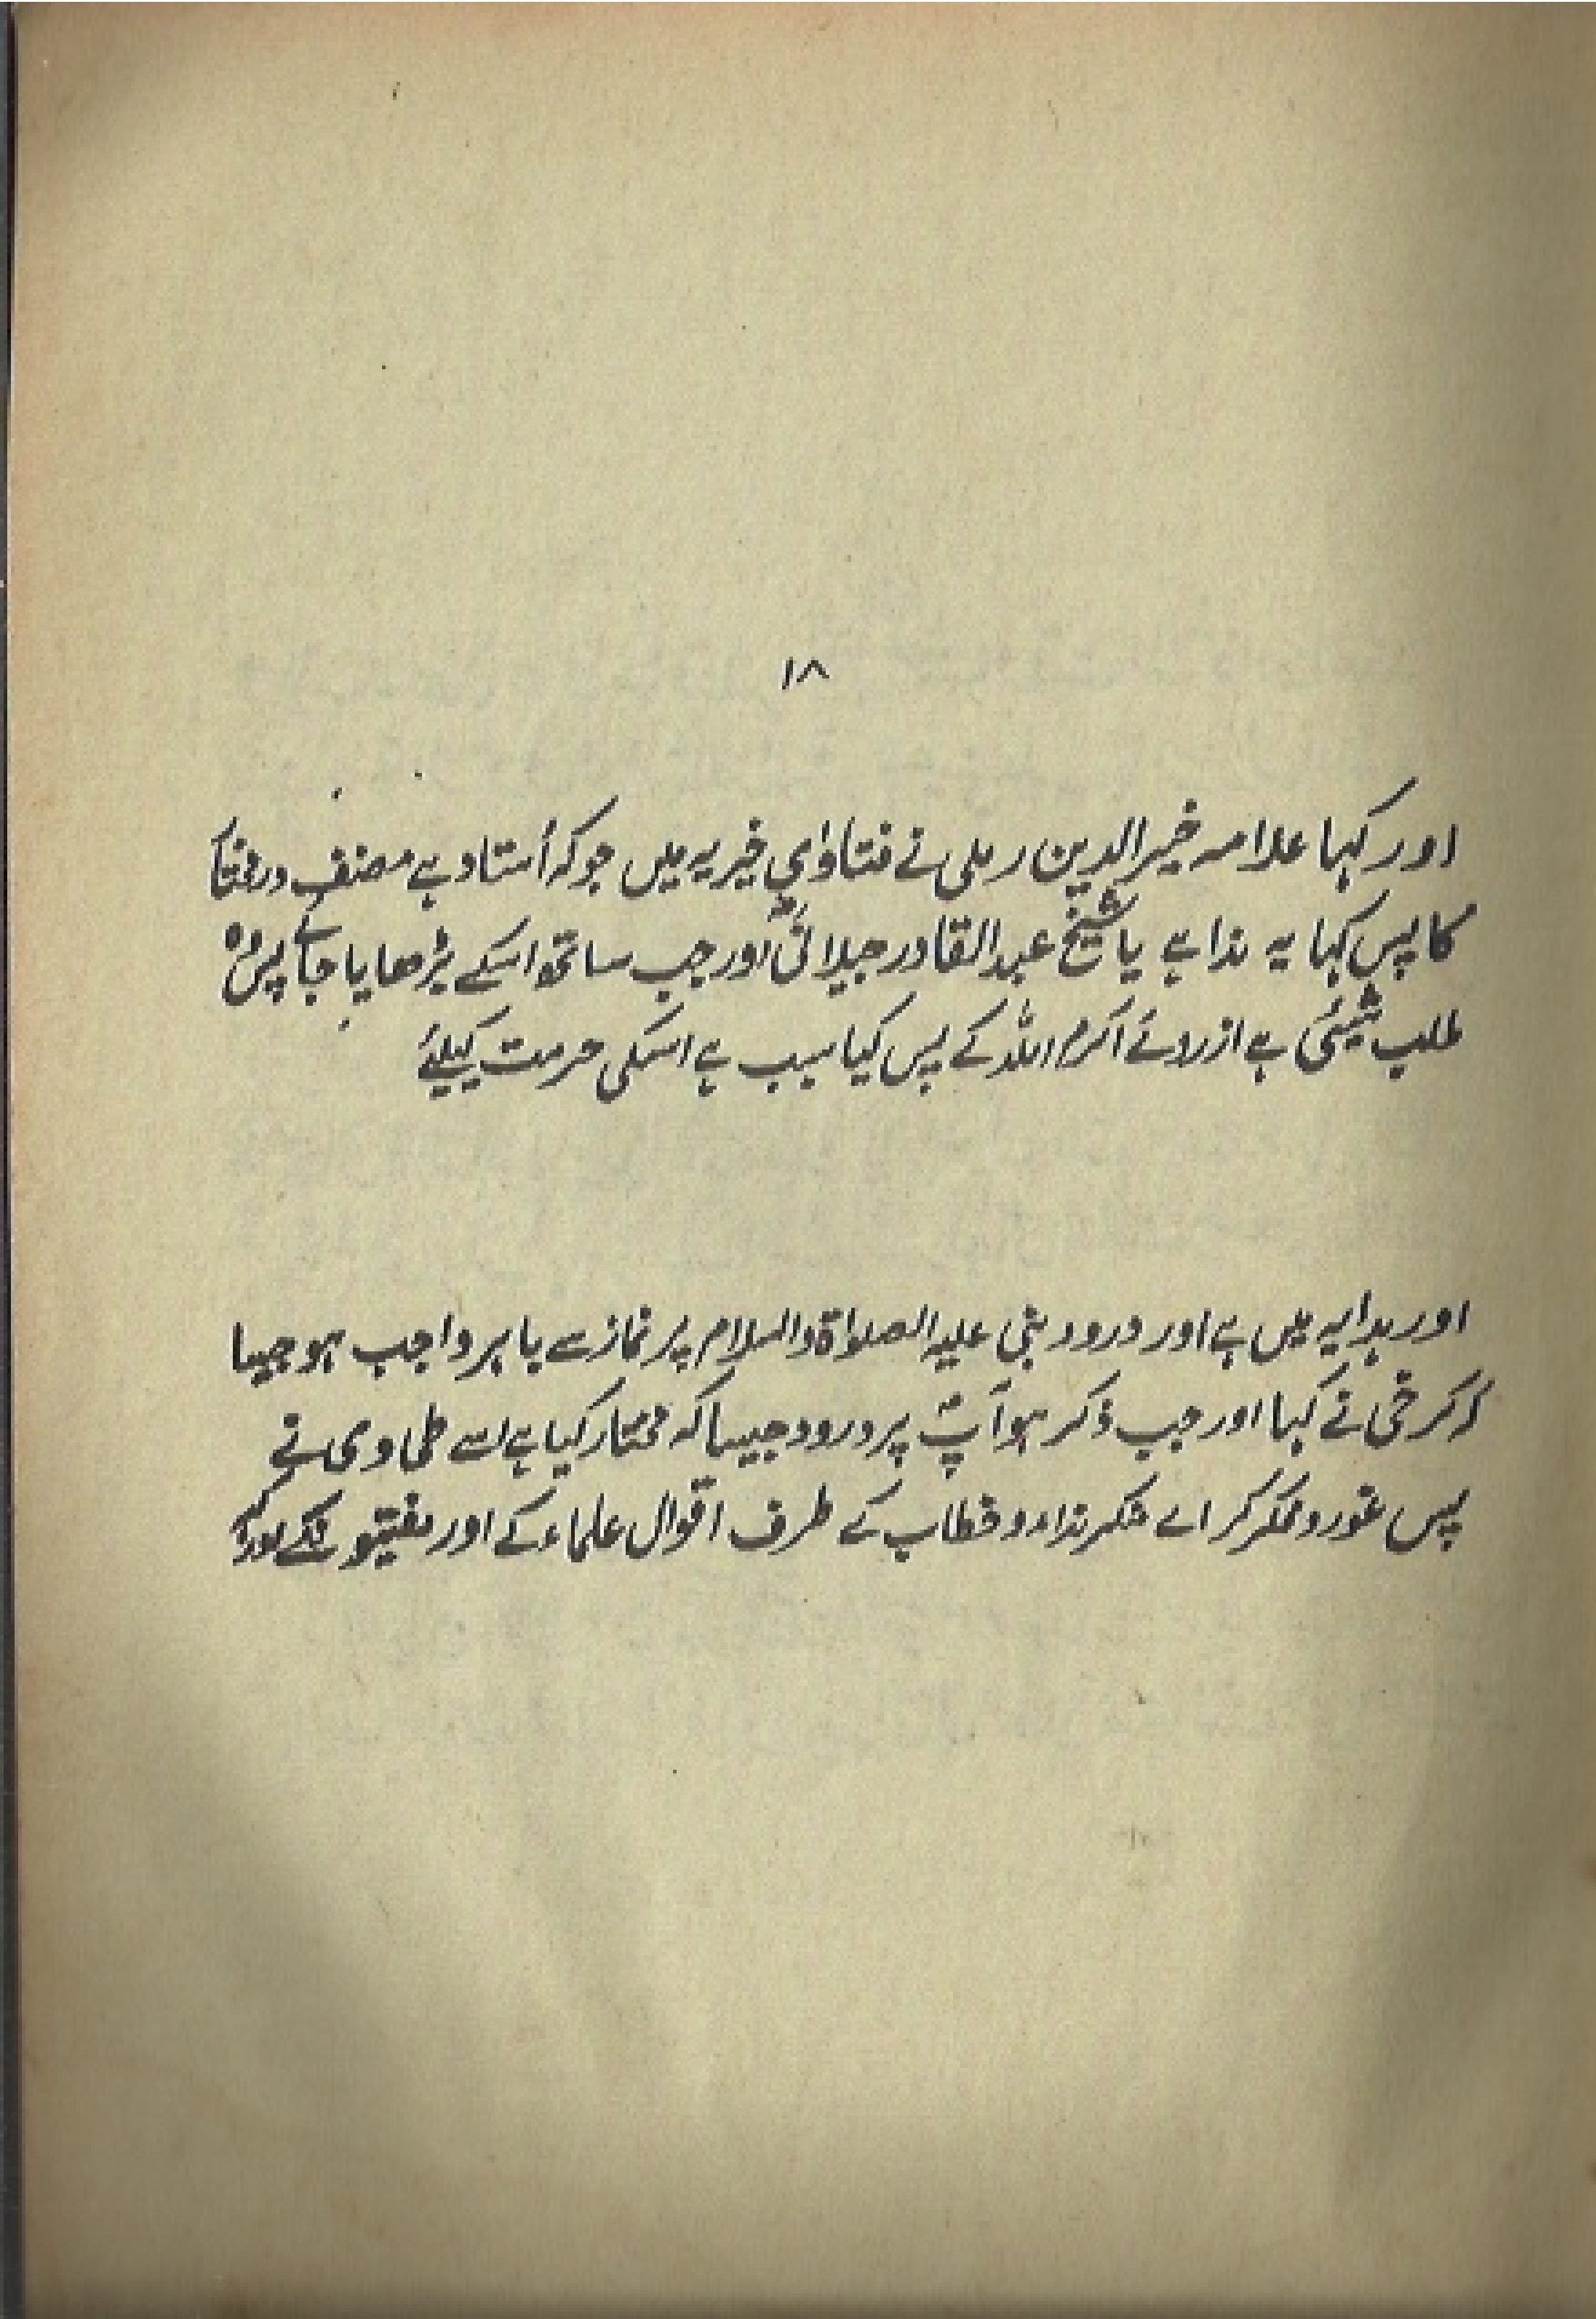 ۱۸
اور کہا علامہ خیر الدین رملی نے فتاوای خیریہ میں جو کہ أستاد ہے مصنف درمختا
کا پس کہا یہ ندا ہے یا شیخ عبد القادر جیلانیؒ اور جب ساتھ اسکے بڑھایا جائے پس وہ
طلب شیئی ہے ازروئے اکرام اللہ کے پس کیا سبب ہے اسکی حرمت کیلئے
اور ہدایہ میں ہے اور درود نبی علیہ الصلواۃ والسلام پر نماز سے باہر واجب ہو جیسا
کرخی نے کہا اور جب ذکر ہو آپؐ پر درود جیسا کہ مختار کیا ہے اسے طحاوی نے
پس غور و فکر کر اے منکر نداء و خطاب کے طرف اقوال علماء کے اور مفتیوں کے